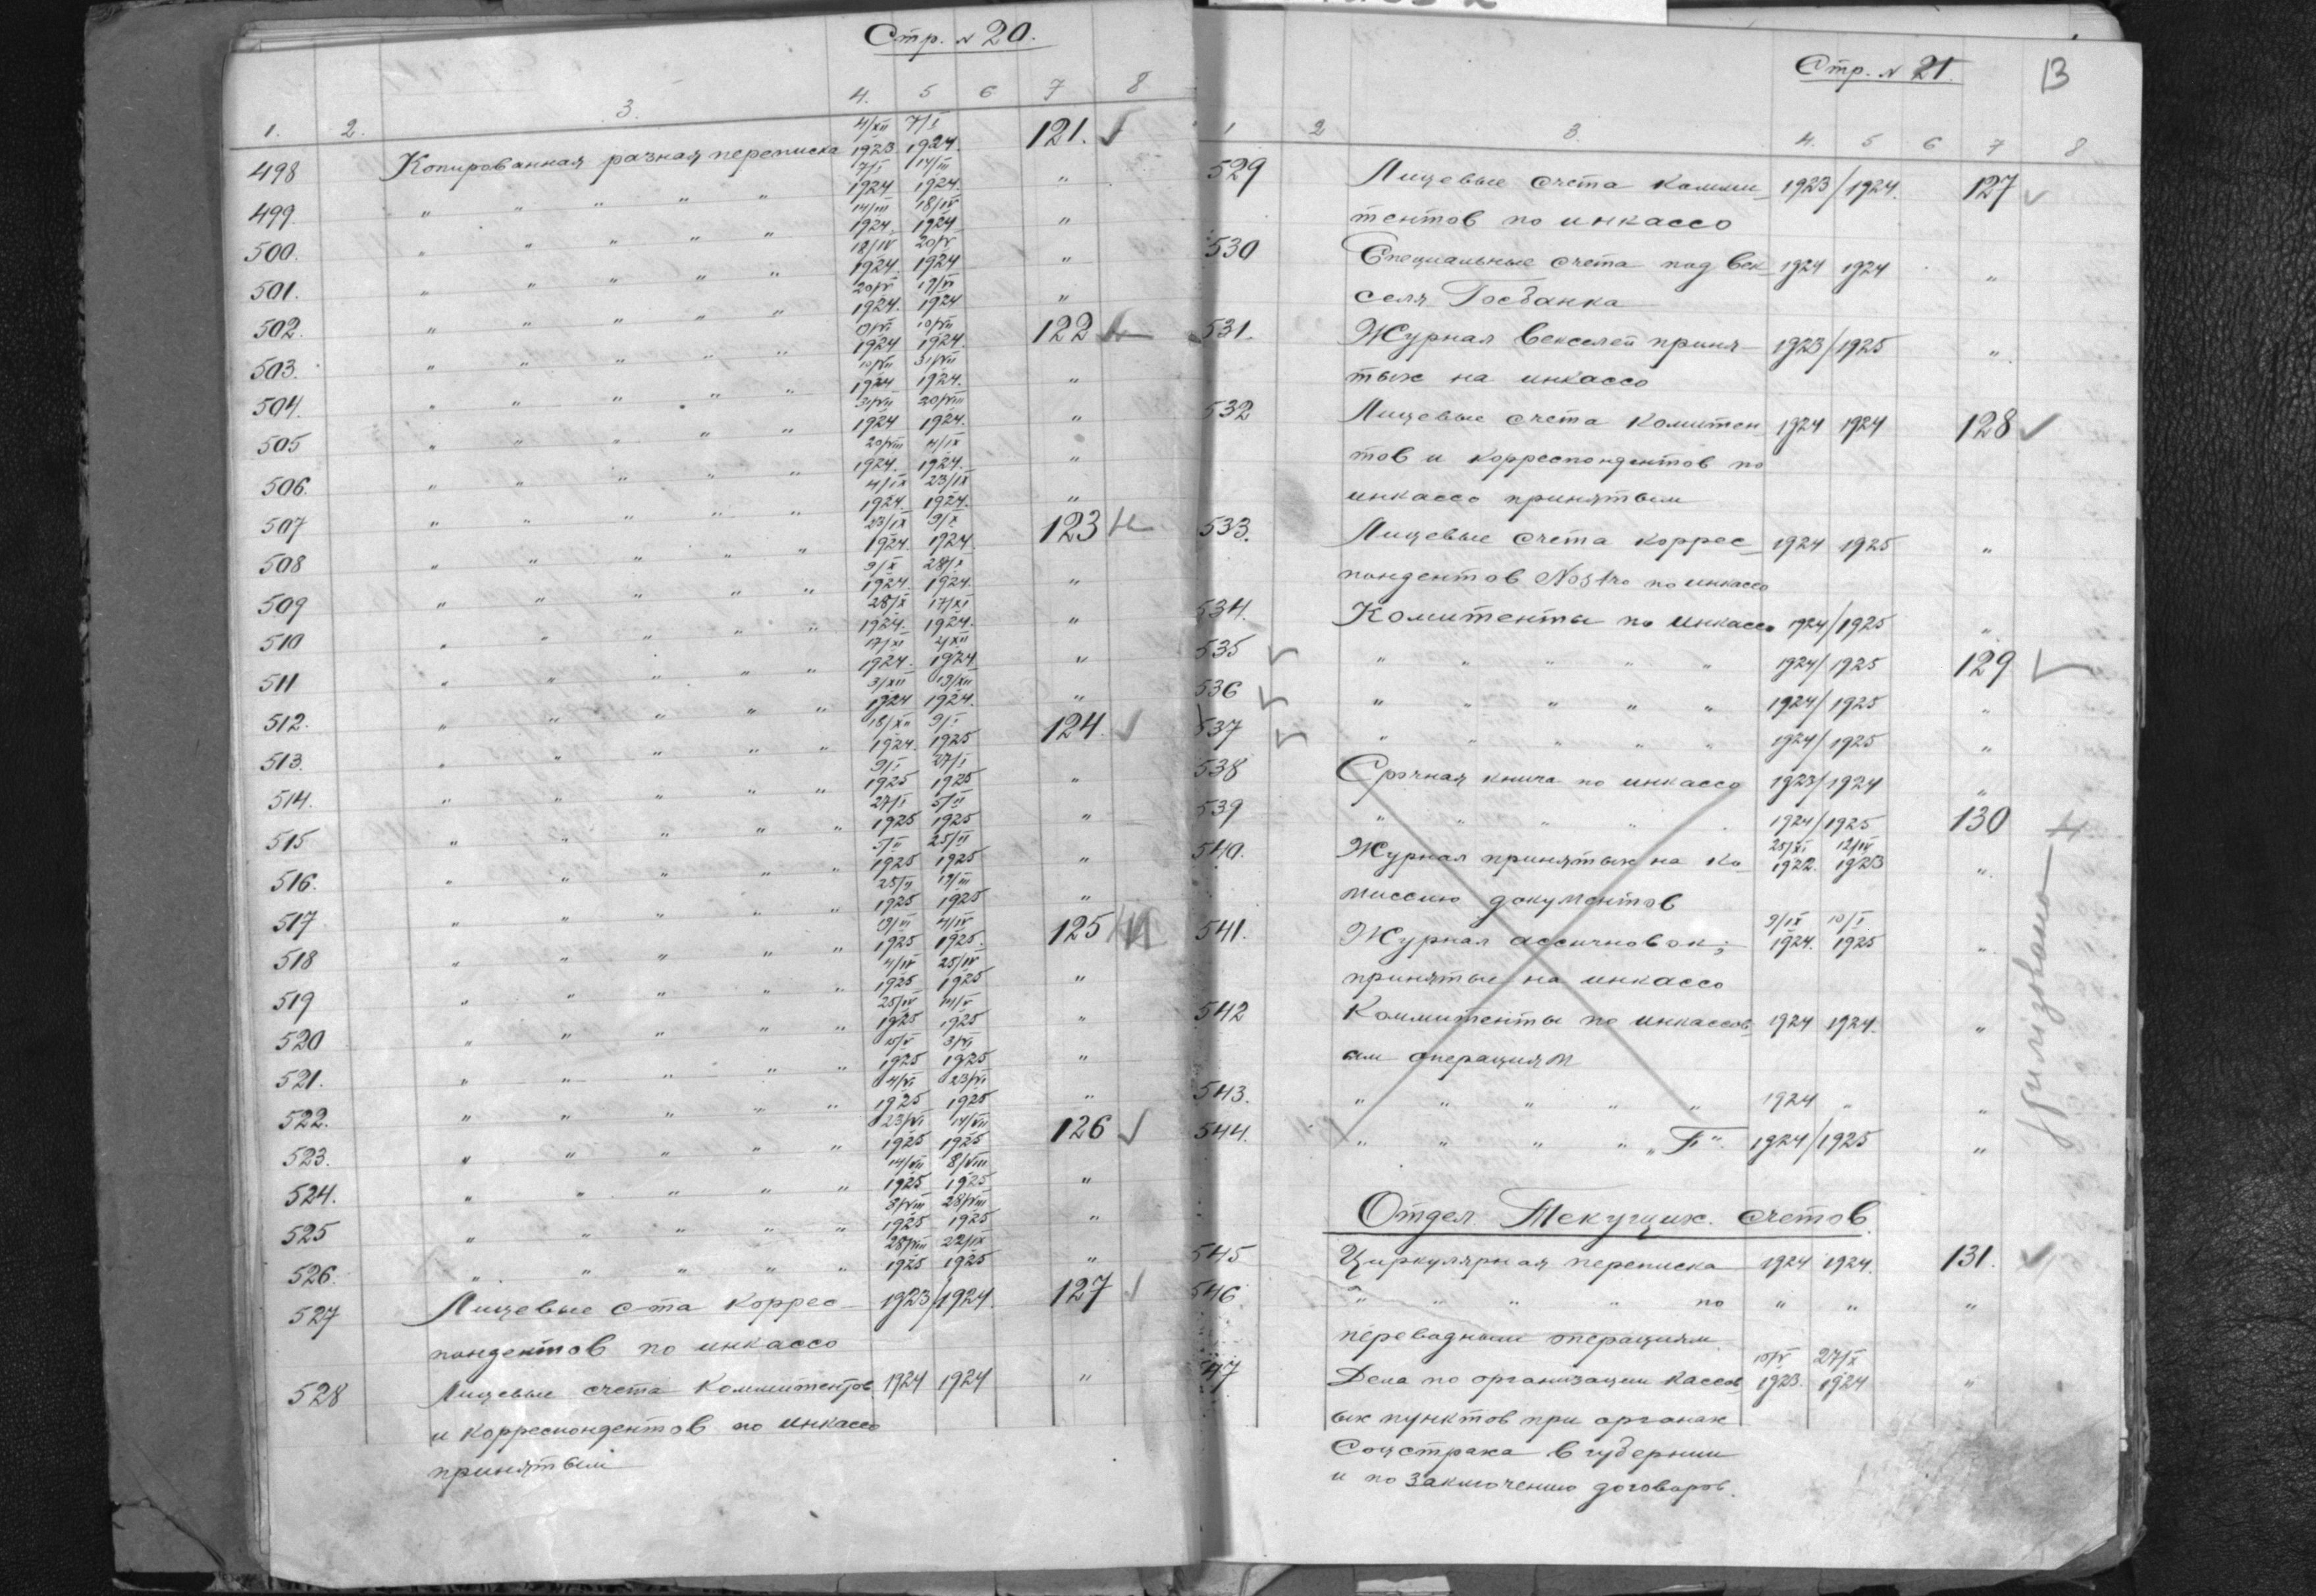 Стр. № 20.
1. 2. 3. 4. 5 6 7 8
498 Копированная разная переписка 4/XII 1923 7/I 1924. 121.
499. " " " " " 7/I 1924 14/III 1924. "
500. " " " " " 14/III 1924. 18/IV 1924 "
501. " " " " " 18/IV 1924. 20/V 1924 "
502. " " " " " 1924. 1924 "
503. " " " " " 1924 10/VII 1924. 122
504. " " " " " 10/VII 1924 31/VII 1924. "
505 " " " " " 31/VII 1924 20/VIII 1924. "
506. " " " " " 20/VIII 1924. 4/IX 1924. "
507 " " " " " 4/IX 1924. 23/IX 1924. "
508 " " " " " 23/IX 1924. 9/X 1924. 123
509 " " " " " 9/X 1924. 28/X 1924. "
510 " " " " " 28/X 1924. 17/XI 1924. "
511 " " " " " 17/XI 1924. 1924 "
512. " " " " " 3/XII 1924 1924. "
513. " " " " " 18/XII 1924. 9/I 1925 124.
514. " " " " " 9/I 1925 27/I 1925 "
515 " " " " " 27/I 1925 5/II 1925 "
516. " " " " " 5/II 1925 25/II 1925 "
517 " " " " " 25/II 1925 19/III 1925 "
518 " " " " " 19/III 1925 4/IV 1925. 125
519 " " " " " 4/IV 1925 25/IV 1925 "
520 " " " " " 25/IV 1925 1925 "
521. " " " " " 1925 3/VI 1925 "
522. " " " " " 4/VI 1925 23/VI 1925 "
523. " " " " " 23/VI 1925 14/VII 1925 126
524. " " " " " 14/VII 1925 8/VIII 1925 "
525 " " " " " 8/VIII 1925 28/VIII 1925 "
526. " " " " " 28/VIII 1925 22/IX 1925 "
527 Лицевые с-та коррес- 1923/1924. 127
пондентов по инкассо
528 Лицевые счета Коммитентов 1924 1924 "
и корреспондентов по инкассо
принятым
Стр. № 21. 13
1 2 3 4. 5 6 7 8
529 Лицевые счета комми- 1923/1924. 127
тентов по инкассо
530 Специальные счета под век 1924 1924 "
селя Госбанка
531. Журнал векселей приня- 1923/1925 "
тых на инкассо
532 Лицевые счета Комитен 1924 1924 128
тов и корреспондентов по
инкассо принятым
533. Лицевые счета коррес- 1924 1925 "
пондентов Nostro по инкассо
534. Комитенты по инкассо 1924/1925 "
535 " " " " " 1924/1925 129
536 " " " " " 1924/1925 "
537 " " " " " 1924/1925 "
538 Срочная книга по инкассо 1923/1924 "
539 " " " " " 1924/1925 130
540. Журнал принятых на ко- 25/XI 1922. 12/IV 1923 "
миссию документов
541. Журнал ассигновок, 9/IX 1924. 10/I 1925 "
принятые на инкассо
542 Коммитенты по инкассов 1924 1924. "
ым операциям
543. " " " " " 1924 " "
544. " " " " " 1924/1925 "
Отдел Текущих счетов.
545 Циркулярная переписка 1924 1924. 131.
546 " " " " по " " "
переводным операциям.
547 Дела по организации кассов 1923. 27/X 1924 "
ых пунктов при органах
Соцстраха в губернии
и по заключению договоров.